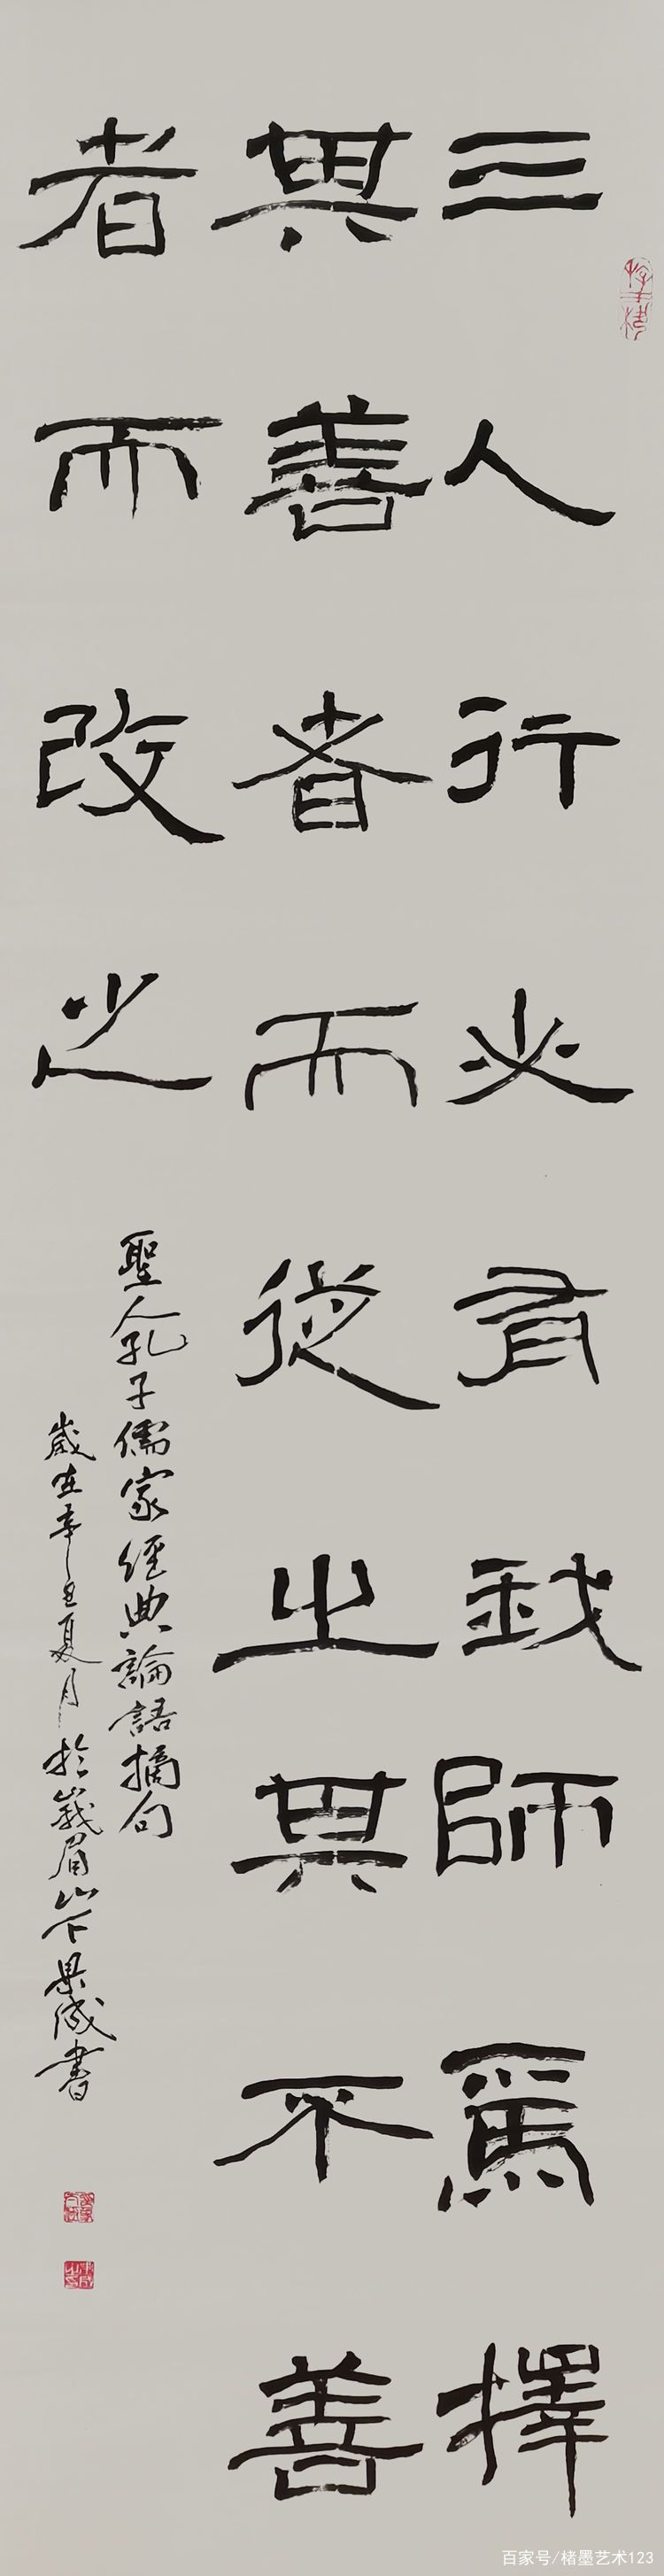 三人行必有我師焉擇
其善者而從之其不善
者而改之
聖人孔子儒家經典論語摘句
歲在辛丑夏月於峩眉山下果成書
百家号/楮墨艺术123